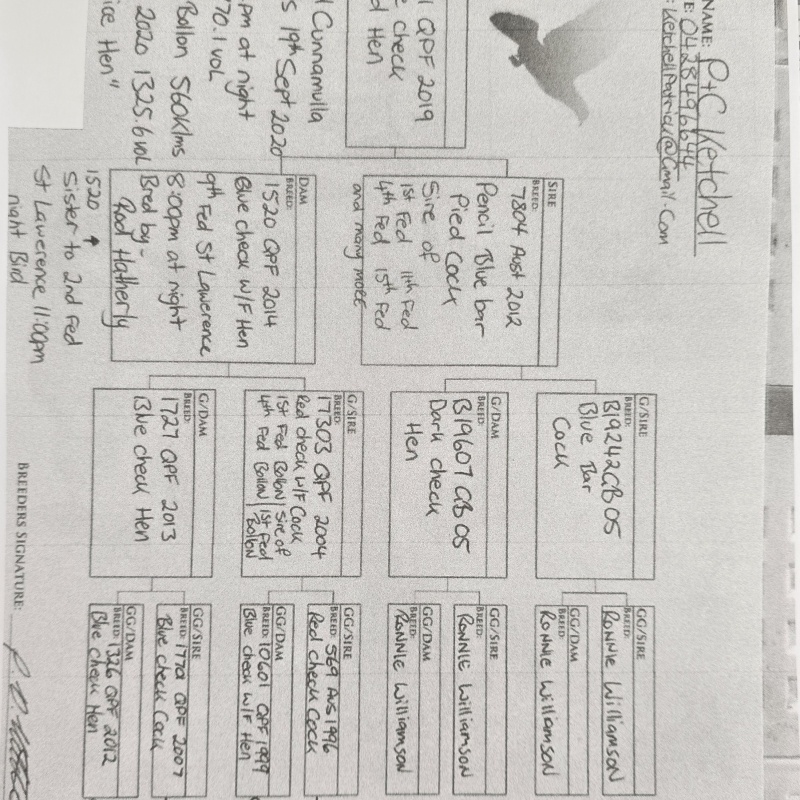 NAME: P+C Ketchell
E: 0428496644
: KetchellPatrick@Gmail.Com
QPF 2019
check
d Hen
Cunnamulla
s 19th Sept 2020
pm at night
70.1 vol
Bollon 560Klms
2020 1325.6 vol
ice Hen"
SIRE
BREED:
7804 Aust 2012
Pencil Blue bar
Pied Cock
Sire of
1st Fed 11th Fed
4th Fed 15th Fed
and many more
DAM
BREED:
1520 QPF 2014
Blue check W/F Hen
9th Fed St Lawerence
8:00pm at night
Bred by-
Rod Hatherly
1520 ↑
Sister to 2nd Fed
St Lawerence 11:00pm
night Bird
G/SIRE
BREED:
B19242GB 05
Blue Bar
Cock
G/DAM
BREED:
B19607 GB 05
Dark check
Hen
G/SIRE
BREED:
17303 QPF 2004
Red check W/F Cock
1st Fed Bollon | Sire of
4th Fed Bollon | 1st Fed
Bollon
G/DAM
BREED:
1727 QPF 2013
Blue check Hen
GG/SIRE
BREED:
Ronnie Williamson
GG/DAM
BREED:
Ronnie Williamson
GG/SIRE
BREED:
Ronnie Williamson
GG/DAM
BREED:
Ronnie Williamson
GG/SIRE
BREED: 569 Aus 1996
Red check Cock
GG/DAM
BREED: 10601 QPF 1999
Blue check W/F Hen
GG/SIRE
BREED: 1770 QPF 2007
Blue check Cock
GG/DAM
BREED: 1326 QPF 2012
Blue check Hen
BREEDERS SIGNATURE: